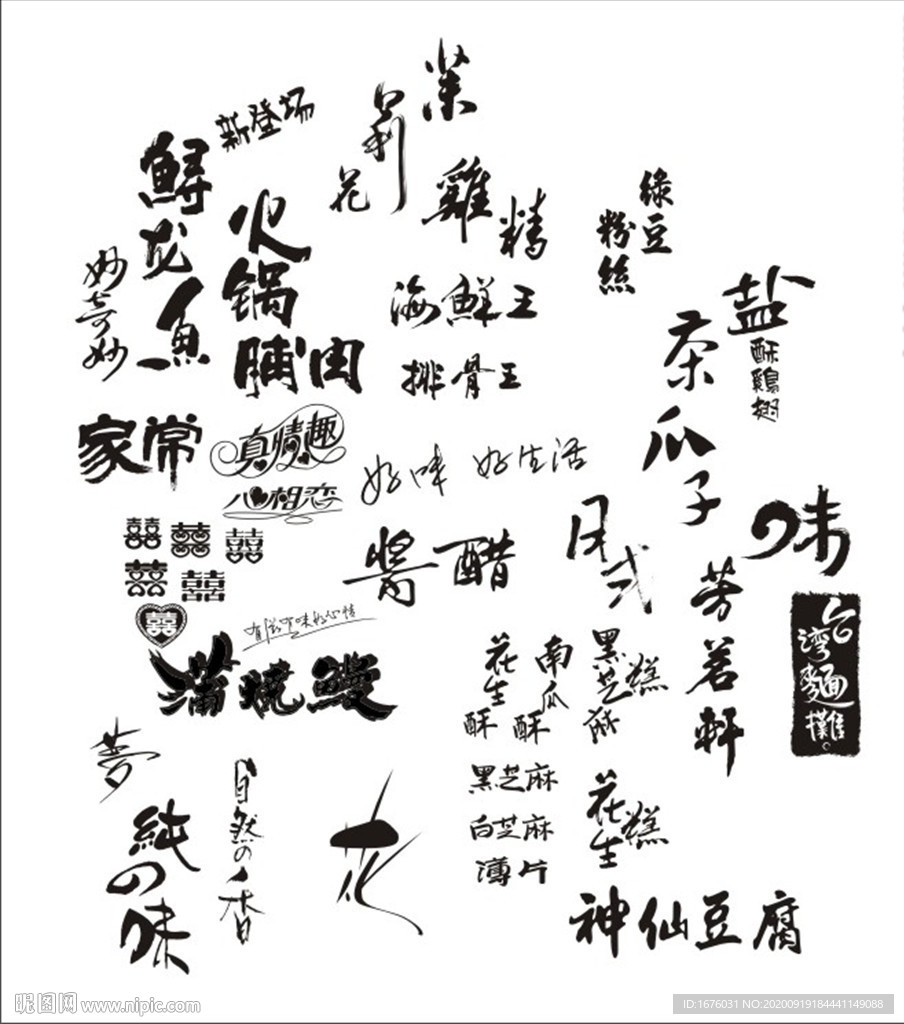 新登场
茉
莉
花
鲟
龙
鱼
火
锅
脯肉
雞
精
綠豆
粉絲
妙奇妙
海鮮王
排骨王
盐
酥鷄翅
茶
瓜
子
家常
真情趣
心相恋
好味
好生活
囍囍囍
囍囍
囍
醬醋
日
式
味
芳茗軒
台
灣麵攤
有滋有味好心情
蒲燒鰻
花生酥
南瓜酥
黑芝麻糕
夢
純の味
自然の香
花
黑芝麻
白芝麻
薄片
花生糕
神仙豆腐
昵图网 www.nipic.com
ID:1676031 NO:20200919184441149088